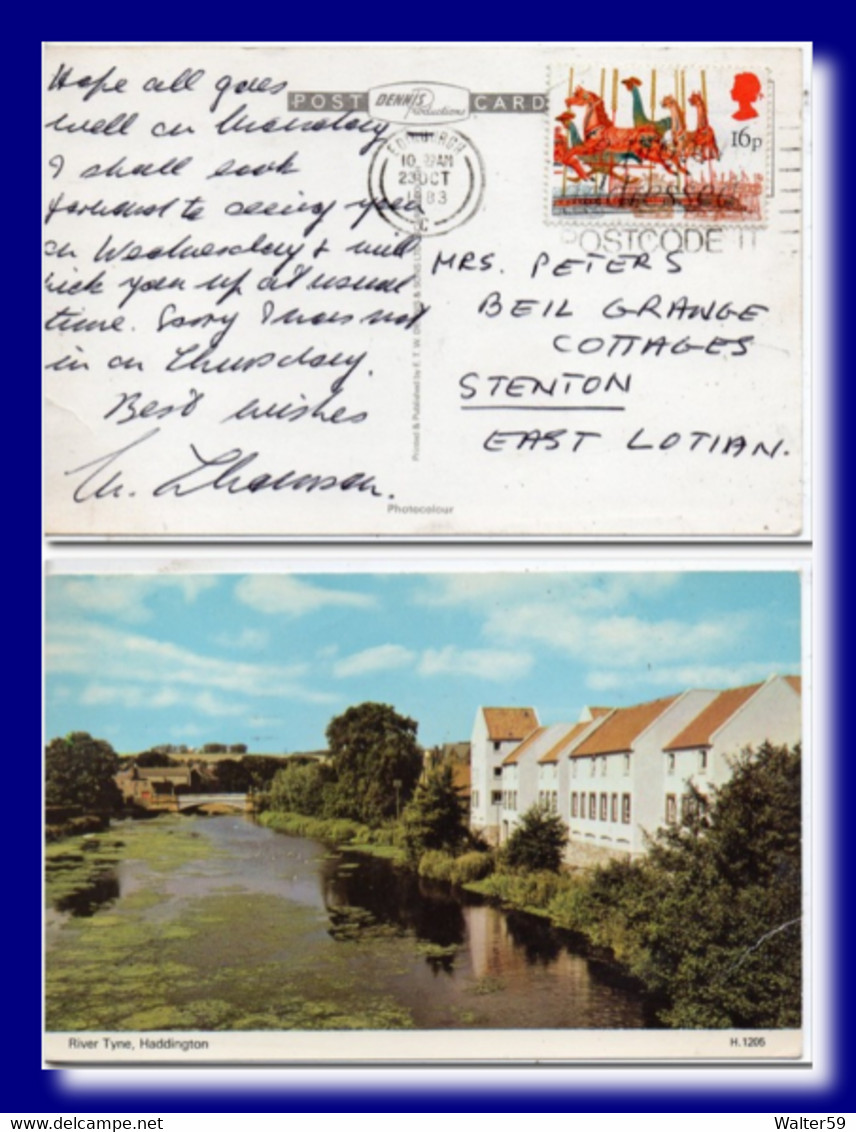 Hope all goes
well on Monday
I shall look
forward to seeing you
on Wednesday & will
pick you up at usual
time. Sorry I was not
in on Thursday.
Best wishes
M. Thomson.
POST CARD
DENNIS
Productions
EDINBURGH
23 OCT
1983
C
16p
POSTCODE IT
MRS. PETERS
BEIL GRANGE
COTTAGES
STENTON
EAST LOTIAN.
Printed & Published by E. T. W. DENNIS & SONS LTD.
Photocolour
River Tyne, Haddington
H.1205
Walter59